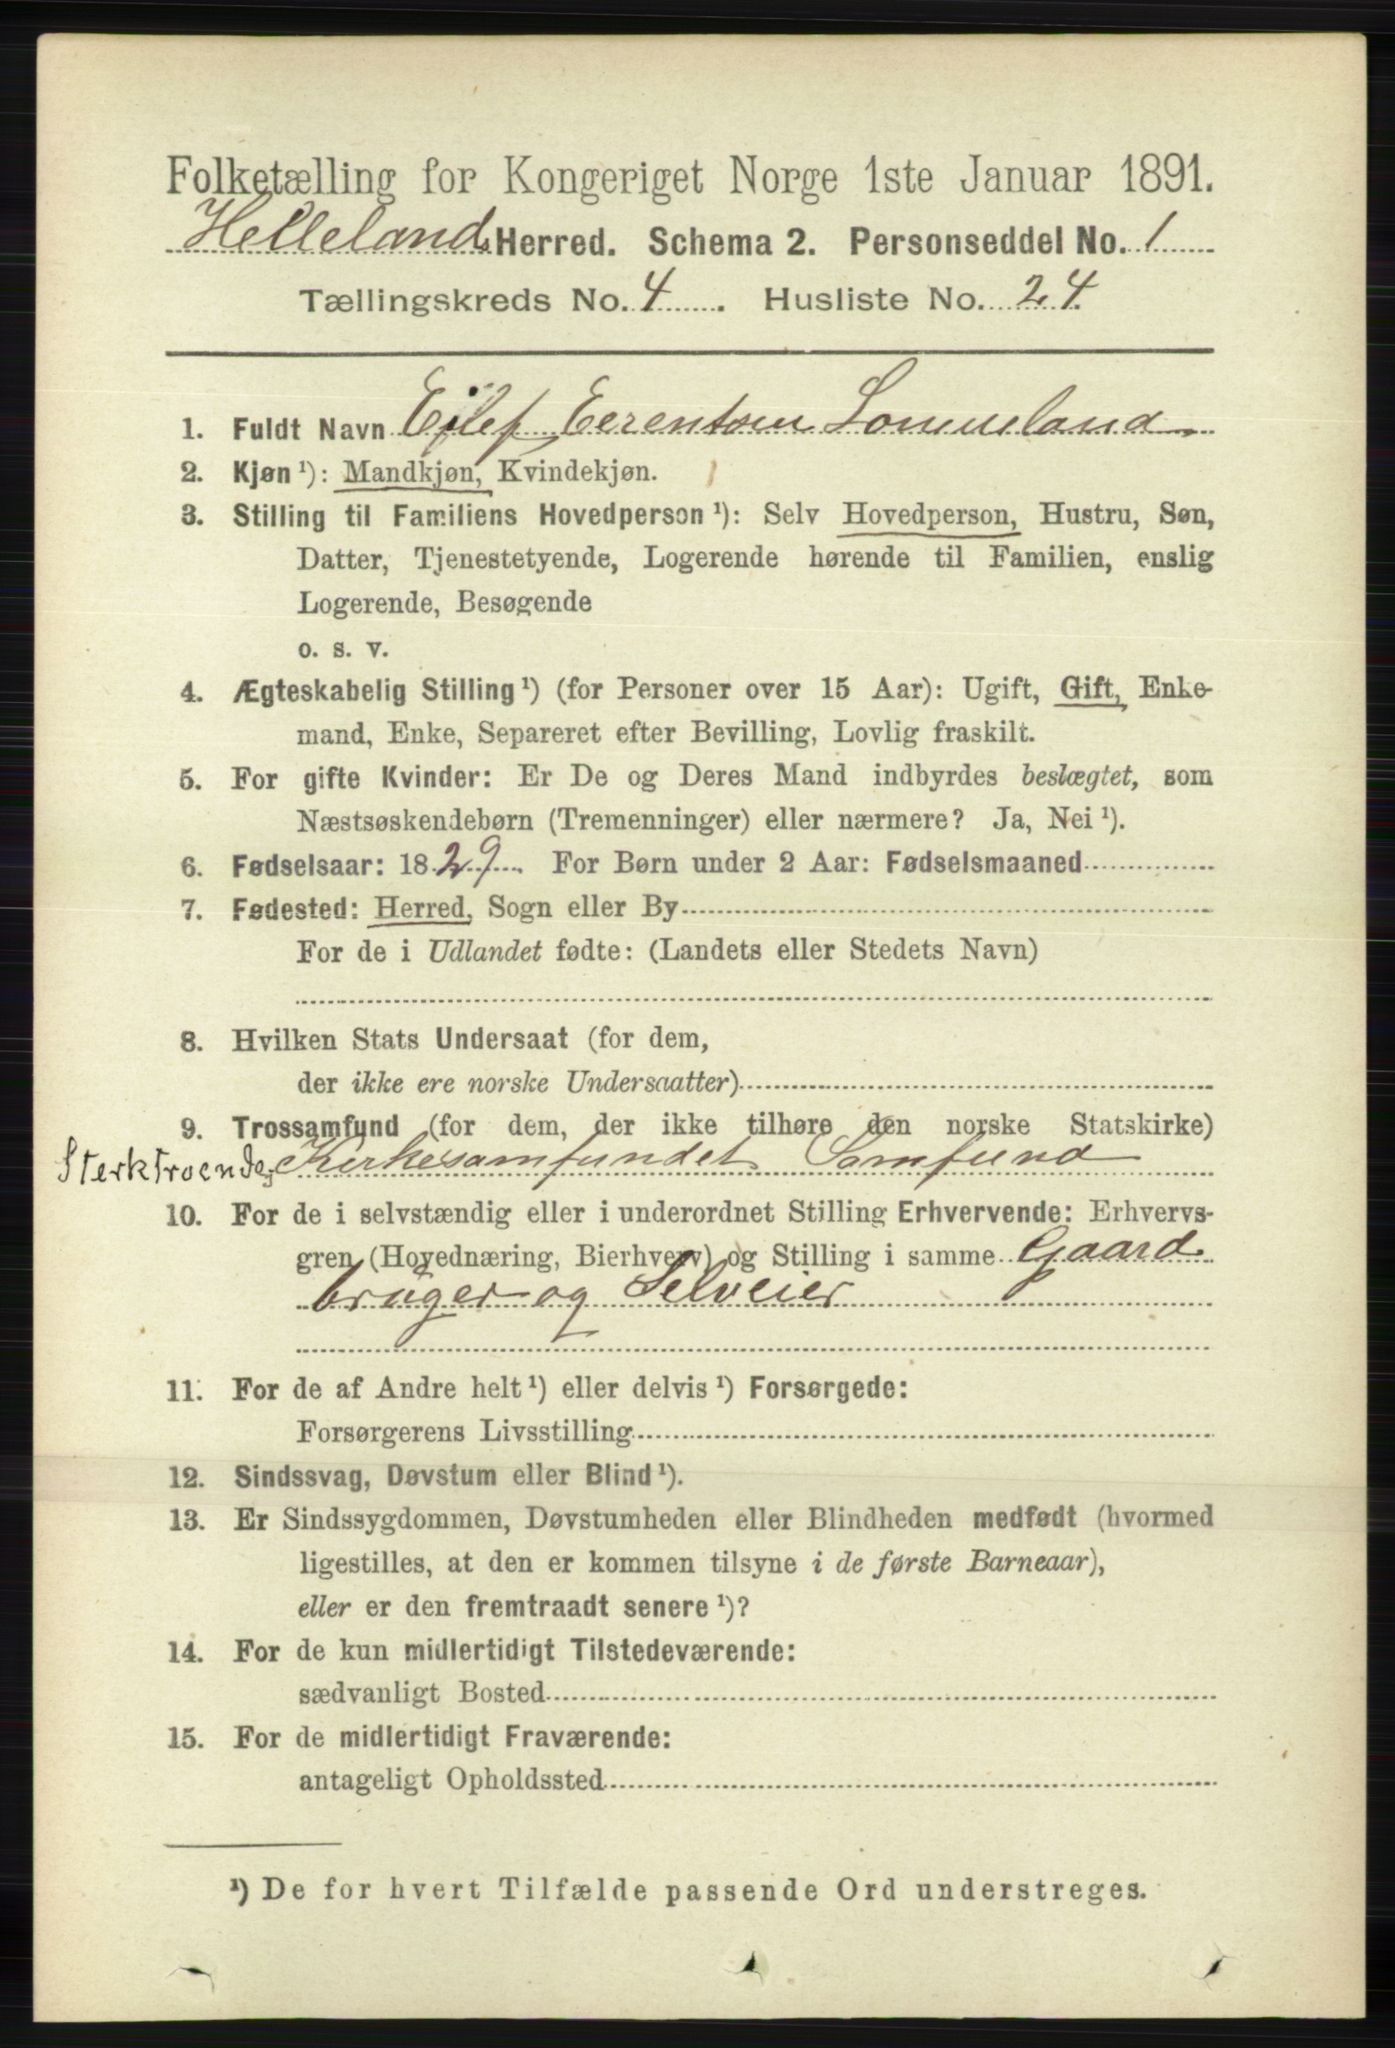 Folketælling for Kongeriget Norge 1ste Januar 1891.
Hellelands Herred. Schema 2. Personseddel No. 1
Tællingskreds No. 4. Husliste No. 24
1. Fuldt Navn Eilef Eerentsen Lommeland
2. Kjøn ¹): Mandkjøn, Kvindekjøn.
3. Stilling til Familiens Hovedperson ¹): Selv Hovedperson, Hustru, Søn,
Datter, Tjenestetyende, Logerende hørende til Familien, enslig
Logerende, Besøgende
o. s. v.
4. Ægteskabelig Stilling ¹) (for Personer over 15 Aar): Ugift, Gift, Enke-
mand, Enke, Separeret efter Bevilling, Lovlig fraskilt.
5. For gifte Kvinder: Er De og Deres Mand indbyrdes beslægtet, som
Næstsøskendebørn (Tremenninger) eller nærmere? Ja, Nei ¹).
6. Fødselsaar: 1829. For Børn under 2 Aar: Fødselsmaaned
7. Fødested: Herred, Sogn eller By
For de i Udlandet fødte: (Landets eller Stedets Navn)
8. Hvilken Stats Undersaat (for dem,
der ikke ere norske Undersaatter)
9. Trossamfund (for dem, der ikke tilhøre den norske Statskirke)
Sterktroendes Kirkesamfundet Samfund
10. For de i selvstændig eller i underordnet Stilling Erhvervende: Erhvervs-
gren (Hovednæring, Bierhverv) og Stilling i samme Gaard
bruger og Selveier
11. For de af Andre helt ¹) eller delvis ¹) Forsørgede:
Forsørgerens Livsstilling
12. Sindssvag, Døvstum eller Blind ¹).
13. Er Sindssygdommen, Døvstumheden eller Blindheden medfødt (hvormed
ligestilles, at den er kommen tilsyne i de første Barneaar),
eller er den fremtraadt senere ¹)?
14. For de kun midlertidigt Tilstedeværende:
sædvanligt Bosted
15. For de midlertidigt Fraværende:
antageligt Opholdssted
¹) De for hvert Tilfælde passende Ord understreges.